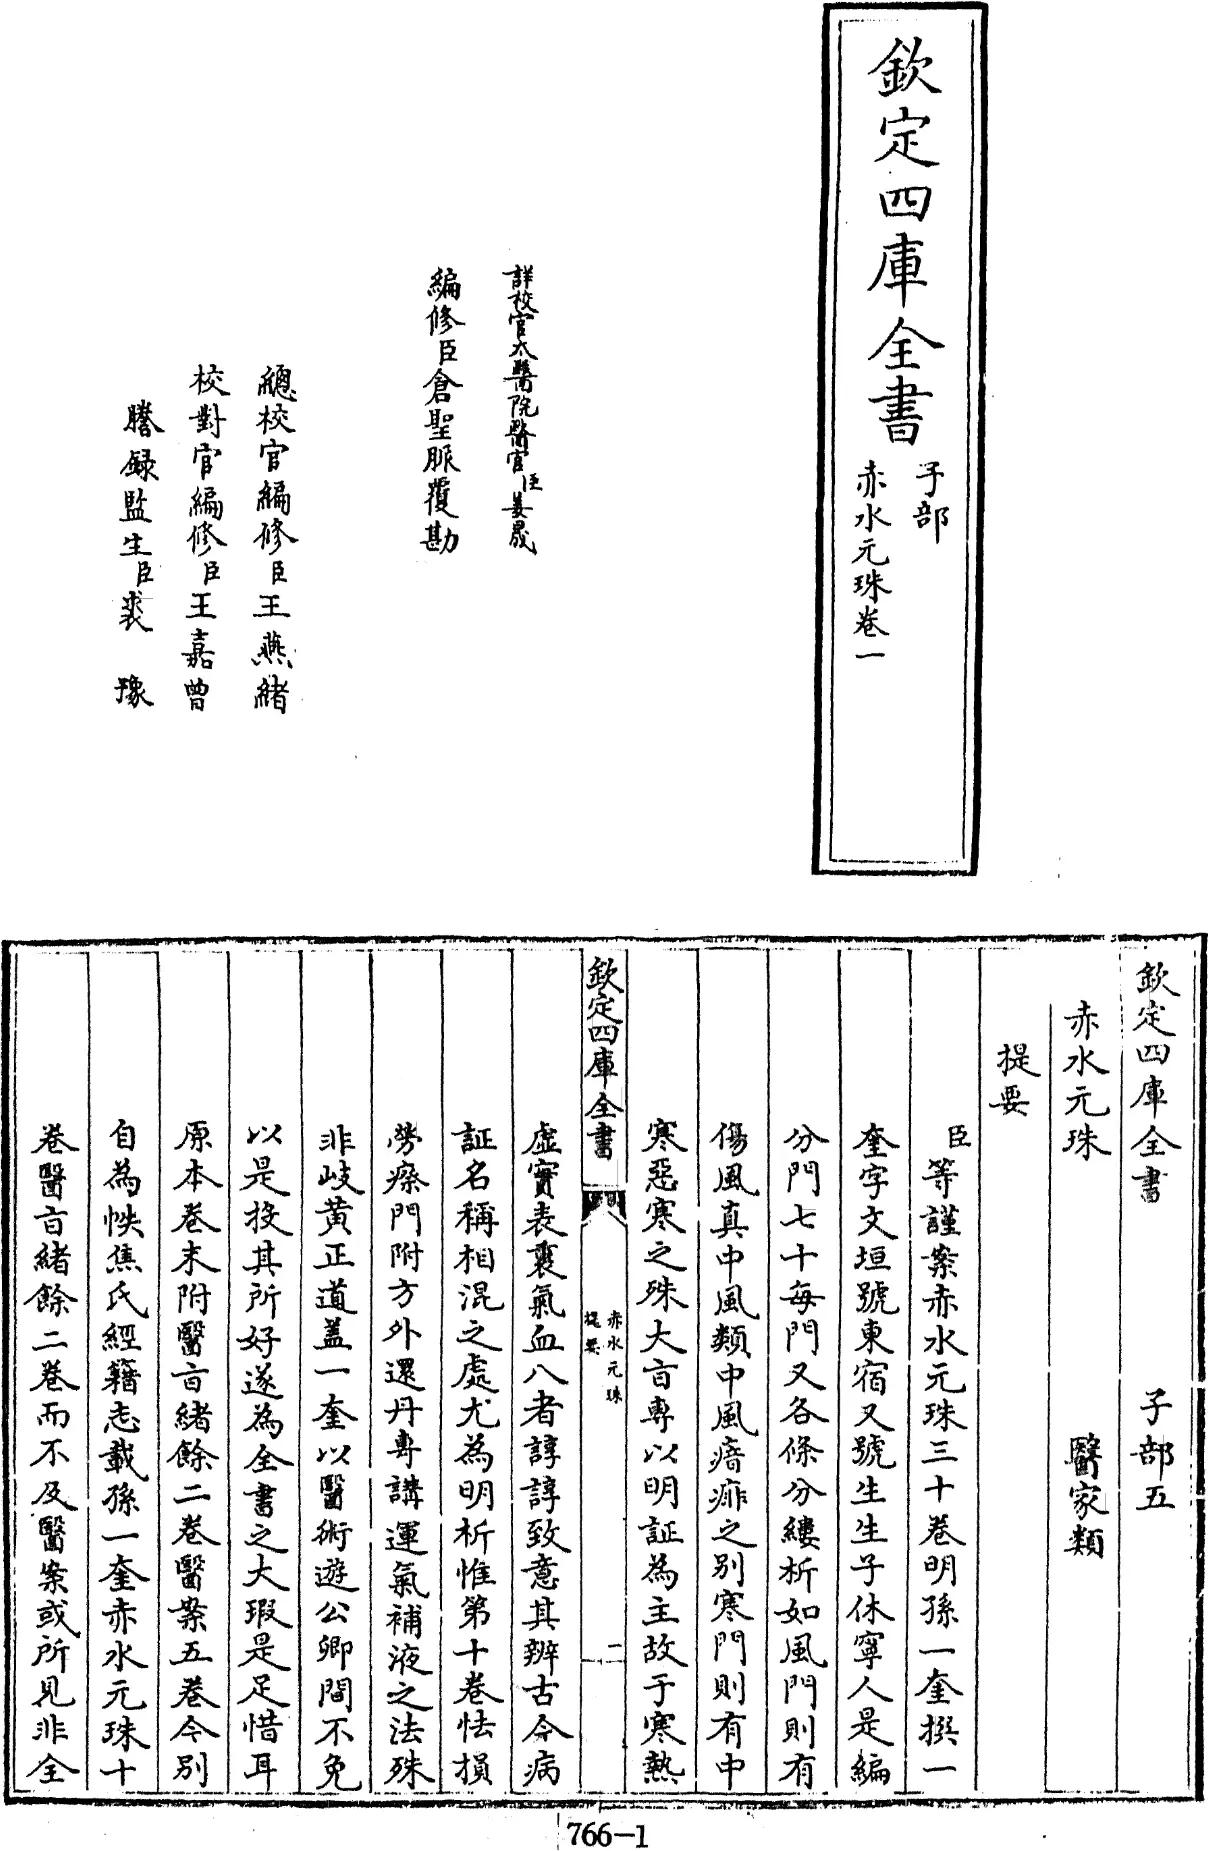 欽定四庫全書
子部
赤水元珠卷一
詳校官太醫院醫官臣姜晟
編修臣倉聖脈覆勘
總校官編修臣王燕緒
校對官編修臣王嘉曾
謄録監生臣裘豫
欽定四庫全書 子部五
赤水元珠 醫家類
提要
臣等謹案赤水元珠三十卷明孫一奎撰一
奎字文垣號東宿又號生生子休寧人是編
分門七十每門又各條分縷析如風門則有
傷風真中風類中風瘖痱之別寒門則有中
寒惡寒之殊大㫖專以明証為主故于寒熱
欽定四庫全書
赤水元珠
提要
二
虛實表裏氣血八者諄諄致意其辨古今病
証名稱相混之處尤為明析惟第十卷怯損
勞瘵門附方外還丹專講運氣補液之法殊
非岐黃正道蓋一奎以醫術遊公卿間不免
以是投其所好遂為全書之大瑕是足惜耳
原本卷末附醫㫖緒餘二卷醫案五卷今別
自為帙焦氏經籍志載孫一奎赤水元珠十
卷醫㫖緒餘二卷而不及醫案或所見非全
766-1